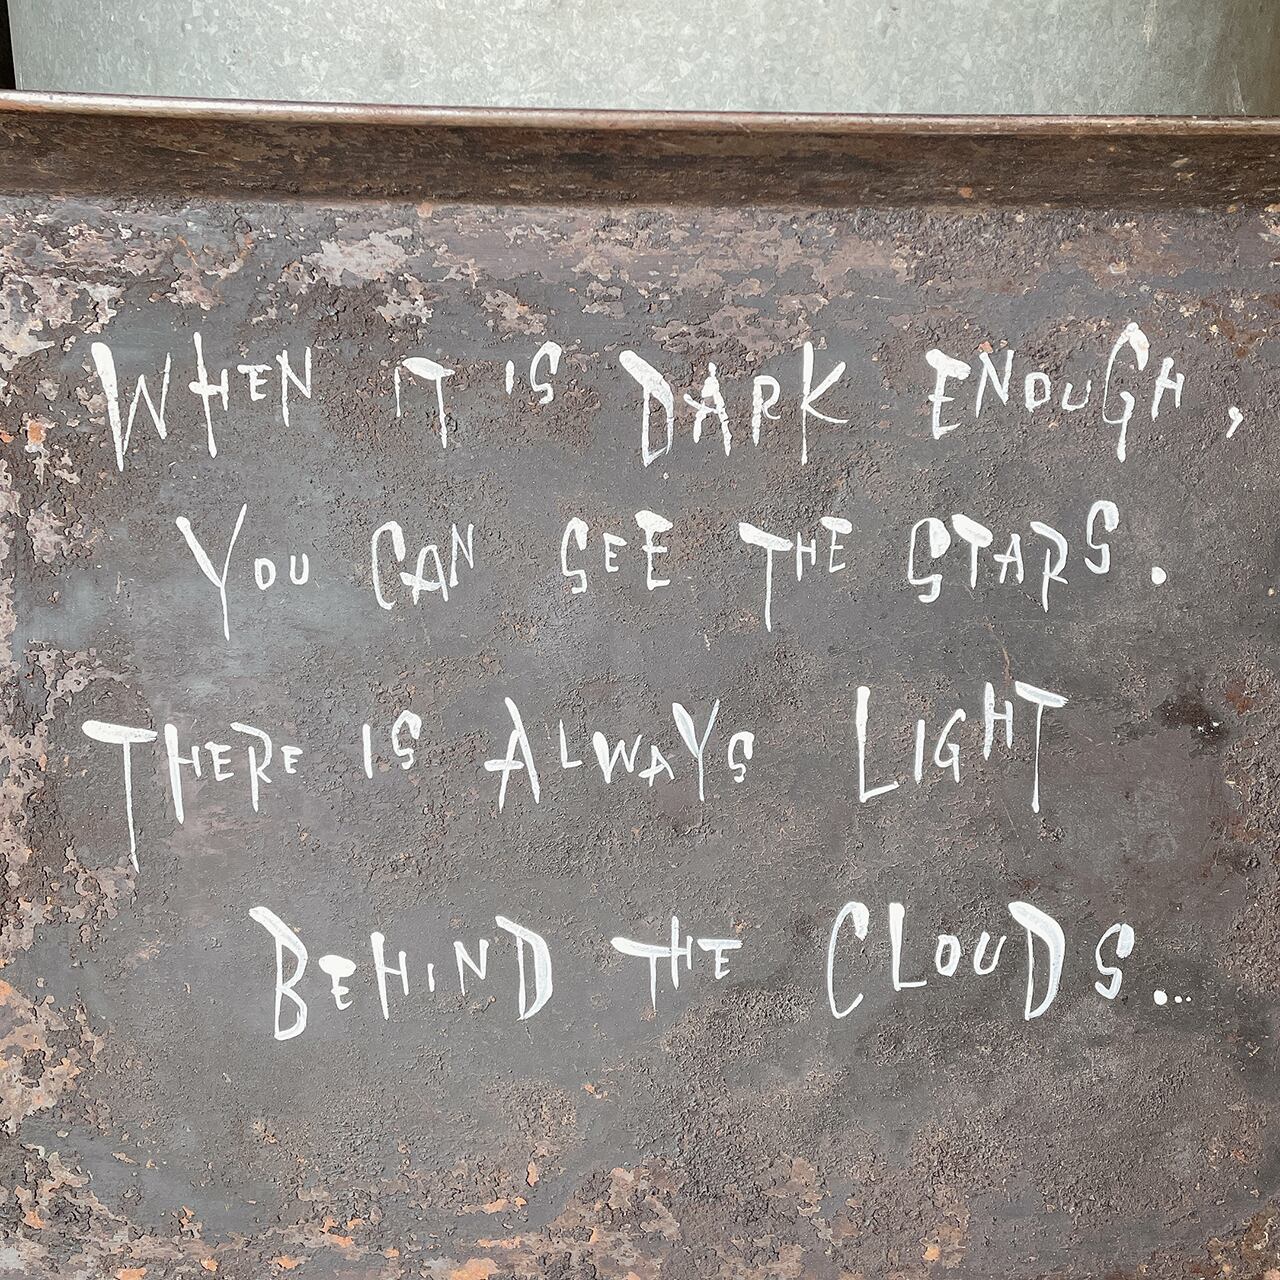 WHEN IT IS DARK ENOUGH,
YOU CAN SEE THE STARS.
THERE IS ALWAYS LIGHT
BEHIND THE CLOUDS...